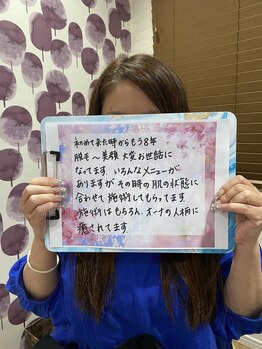 初めて来た時からもう8年
脱毛〜美顔 大変お世話に
なってます。いろんなメニューが
ありますが その時の肌の状態に
合わせて 施術してもらってます
施術はもちろん、オーナの人柄に
癒されてます。